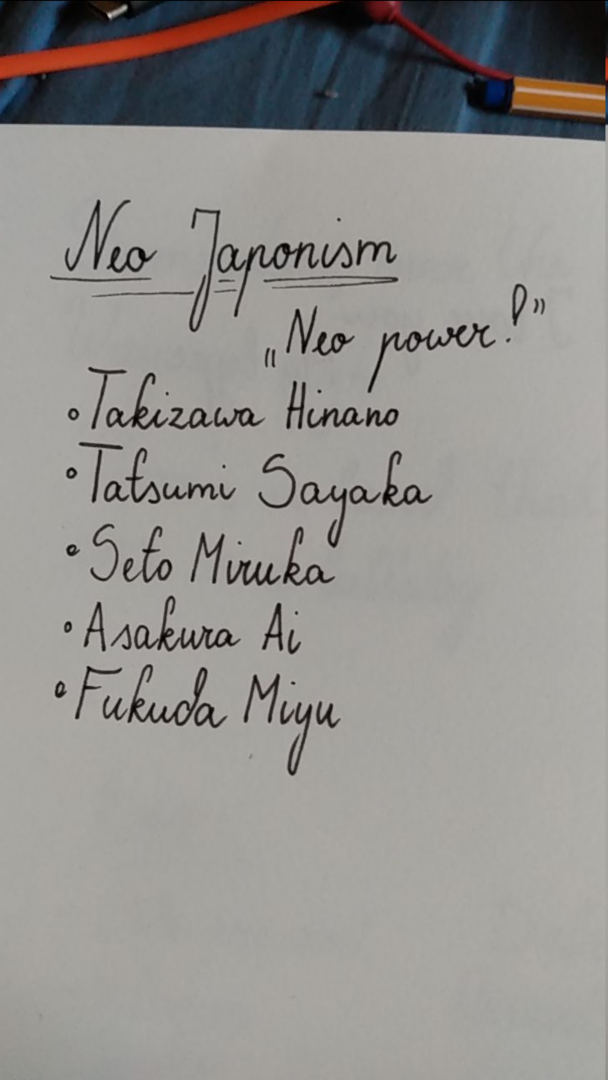 Neo Japonism
„Neo power!”
• Takizawa Hinano
• Tatsumi Sayaka
• Seto Miruka
• Asakura Ai
• Fukuda Miyu